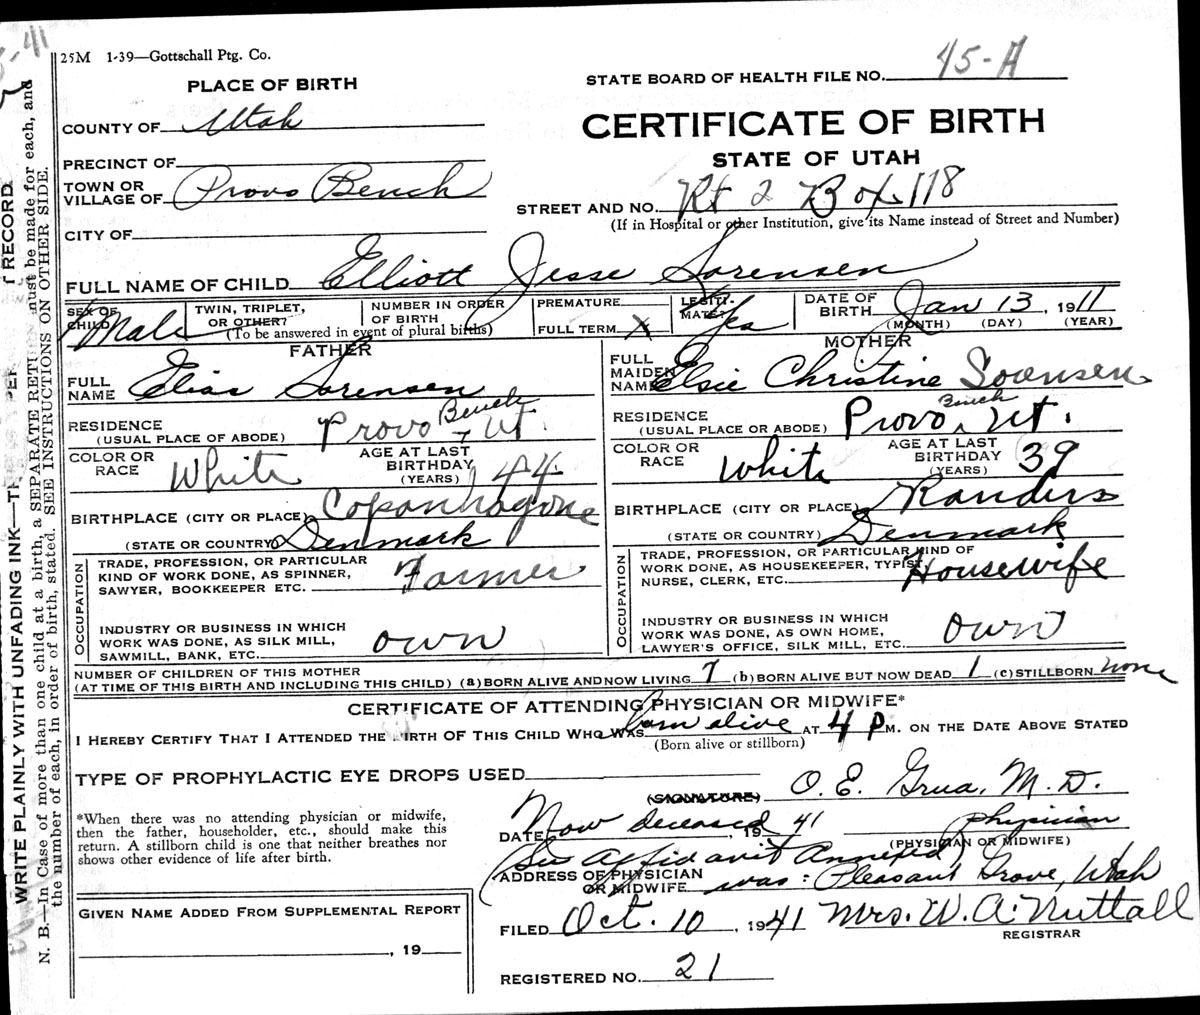 25M 1-39—Gottschall Ptg. Co.
PLACE OF BIRTH
STATE BOARD OF HEALTH FILE NO. 45-A
COUNTY OF Utah
CERTIFICATE OF BIRTH
STATE OF UTAH
PRECINCT OF
TOWN OR VILLAGE OF Provo Bench
STREET AND NO. Rt 2 Box 118
(If in Hospital or other Institution, give its Name instead of Street and Number)
CITY OF
FULL NAME OF CHILD Elliott Jesse Sorensen
SEX OF CHILD Male
TWIN, TRIPLET, OR OTHER?
NUMBER IN ORDER OF BIRTH
(To be answered in event of plural births)
PREMATURE
FULL TERM X
LEGITIMATE? Yes
DATE OF BIRTH Jan 13, 1911
(MONTH) (DAY) (YEAR)
FATHER
FULL NAME Elias Sorensen
RESIDENCE (USUAL PLACE OF ABODE) Provo Bench, Ut.
COLOR OR RACE White
AGE AT LAST BIRTHDAY (YEARS) 44
BIRTHPLACE (CITY OR PLACE) Copenhagone
(STATE OR COUNTRY) Denmark
OCCUPATION
TRADE, PROFESSION, OR PARTICULAR KIND OF WORK DONE, AS SPINNER, SAWYER, BOOKKEEPER ETC. Farmer
INDUSTRY OR BUSINESS IN WHICH WORK WAS DONE, AS SILK MILL, SAWMILL, BANK, ETC. own
MOTHER
FULL MAIDEN NAME Elsie Christine Sorensen
RESIDENCE (USUAL PLACE OR ABODE) Provo Bench, Ut.
COLOR OR RACE White
AGE AT LAST BIRTHDAY (YEARS) 39
BIRTHPLACE (CITY OR PLACE) Randers
(STATE OR COUNTRY) Denmark
OCCUPATION
TRADE, PROFESSION, OR PARTICULAR KIND OF WORK DONE, AS HOUSEKEEPER, TYPIST, NURSE, CLERK, ETC. Housewife
INDUSTRY OR BUSINESS IN WHICH WORK WAS DONE, AS OWN HOME, LAWYER'S OFFICE, SILK MILL, ETC. own
NUMBER OF CHILDREN OF THIS MOTHER
(AT TIME OF THIS BIRTH AND INCLUDING THIS CHILD) (a) BORN ALIVE AND NOW LIVING 7 (b) BORN ALIVE BUT NOW DEAD 1 (c) STILLBORN none
CERTIFICATE OF ATTENDING PHYSICIAN OR MIDWIFE*
I HEREBY CERTIFY THAT I ATTENDED THE BIRTH OF THIS CHILD WHO WAS born alive AT 4 P.M. ON THE DATE ABOVE STATED
(Born alive or stillborn)
TYPE OF PROPHYLACTIC EYE DROPS USED
(SIGNATURE) O. E. Grua, M.D.
*When there was no attending physician or midwife,
then the father, householder, etc., should make this
return. A stillborn child is one that neither breathes nor
shows other evidence of life after birth.
DATE Now deceased, 1941 Physician
(PHYSICIAN OR MIDWIFE)
(See Affidavit Annexed)
ADDRESS OF PHYSICIAN OR MIDWIFE was: Pleasant Grove, Utah
GIVEN NAME ADDED FROM SUPPLEMENTAL REPORT
, 19
FILED Oct. 10, 1941 Mrs. W. A. Nuttall
REGISTRAR
REGISTERED NO. 21
N. B.—In Case of more than one child at a birth, a SEPARATE must be made for each, and
the number of each, in order of birth, stated. SEE INSTRUCTIONS ON OTHER SIDE.
WRITE PLAINLY WITH UNFADING INK—
RECORD